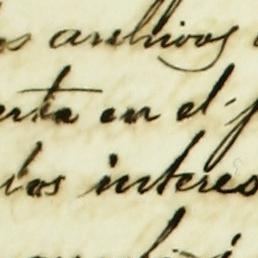 os archivos
erta en el
los interes